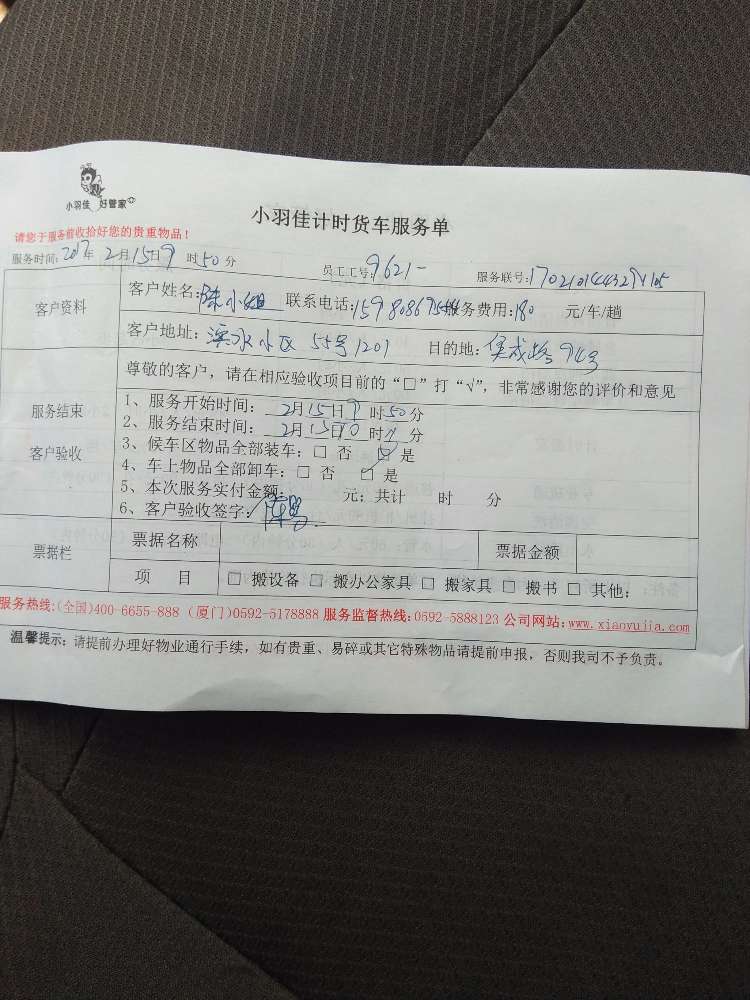 小羽佳 好管家
小羽佳计时货车服务单
请您于服务前收拾好您的贵重物品！
服务时间：2017年2月15日9时50分 员工工号：9621 服务联号：
客户资料 客户姓名：陈小姐 联系电话： 服务费用：180 元/车/趟
客户地址：滨水小区 55号1201 目的地：943
服务结束 客户验收
尊敬的客户，请在相应验收项目前的“□”打“√”，非常感谢您的评价和意见
1、服务开始时间：2月15日9时50分
2、服务结束时间：2月15日10时11分
3、候车区物品全部装车：□ 否 ☑ 是
4、车上物品全部卸车：□ 否 ☑ 是
5、本次服务实付金额： 元；共计 时 分
6、客户验收签字：
票据栏 票据名称 票据金额
项 目 □ 搬设备 □ 搬办公家具 □ 搬家具 □ 搬书 □ 其他：
服务热线：(全国)400-6655-888 (厦门)0592-5178888 服务监督热线：0592-5888123 公司网站：www.xiaoyujia.com
温馨提示：请提前办理好物业通行手续，如有贵重、易碎或其它特殊物品请提前申报，否则我司不予负责。